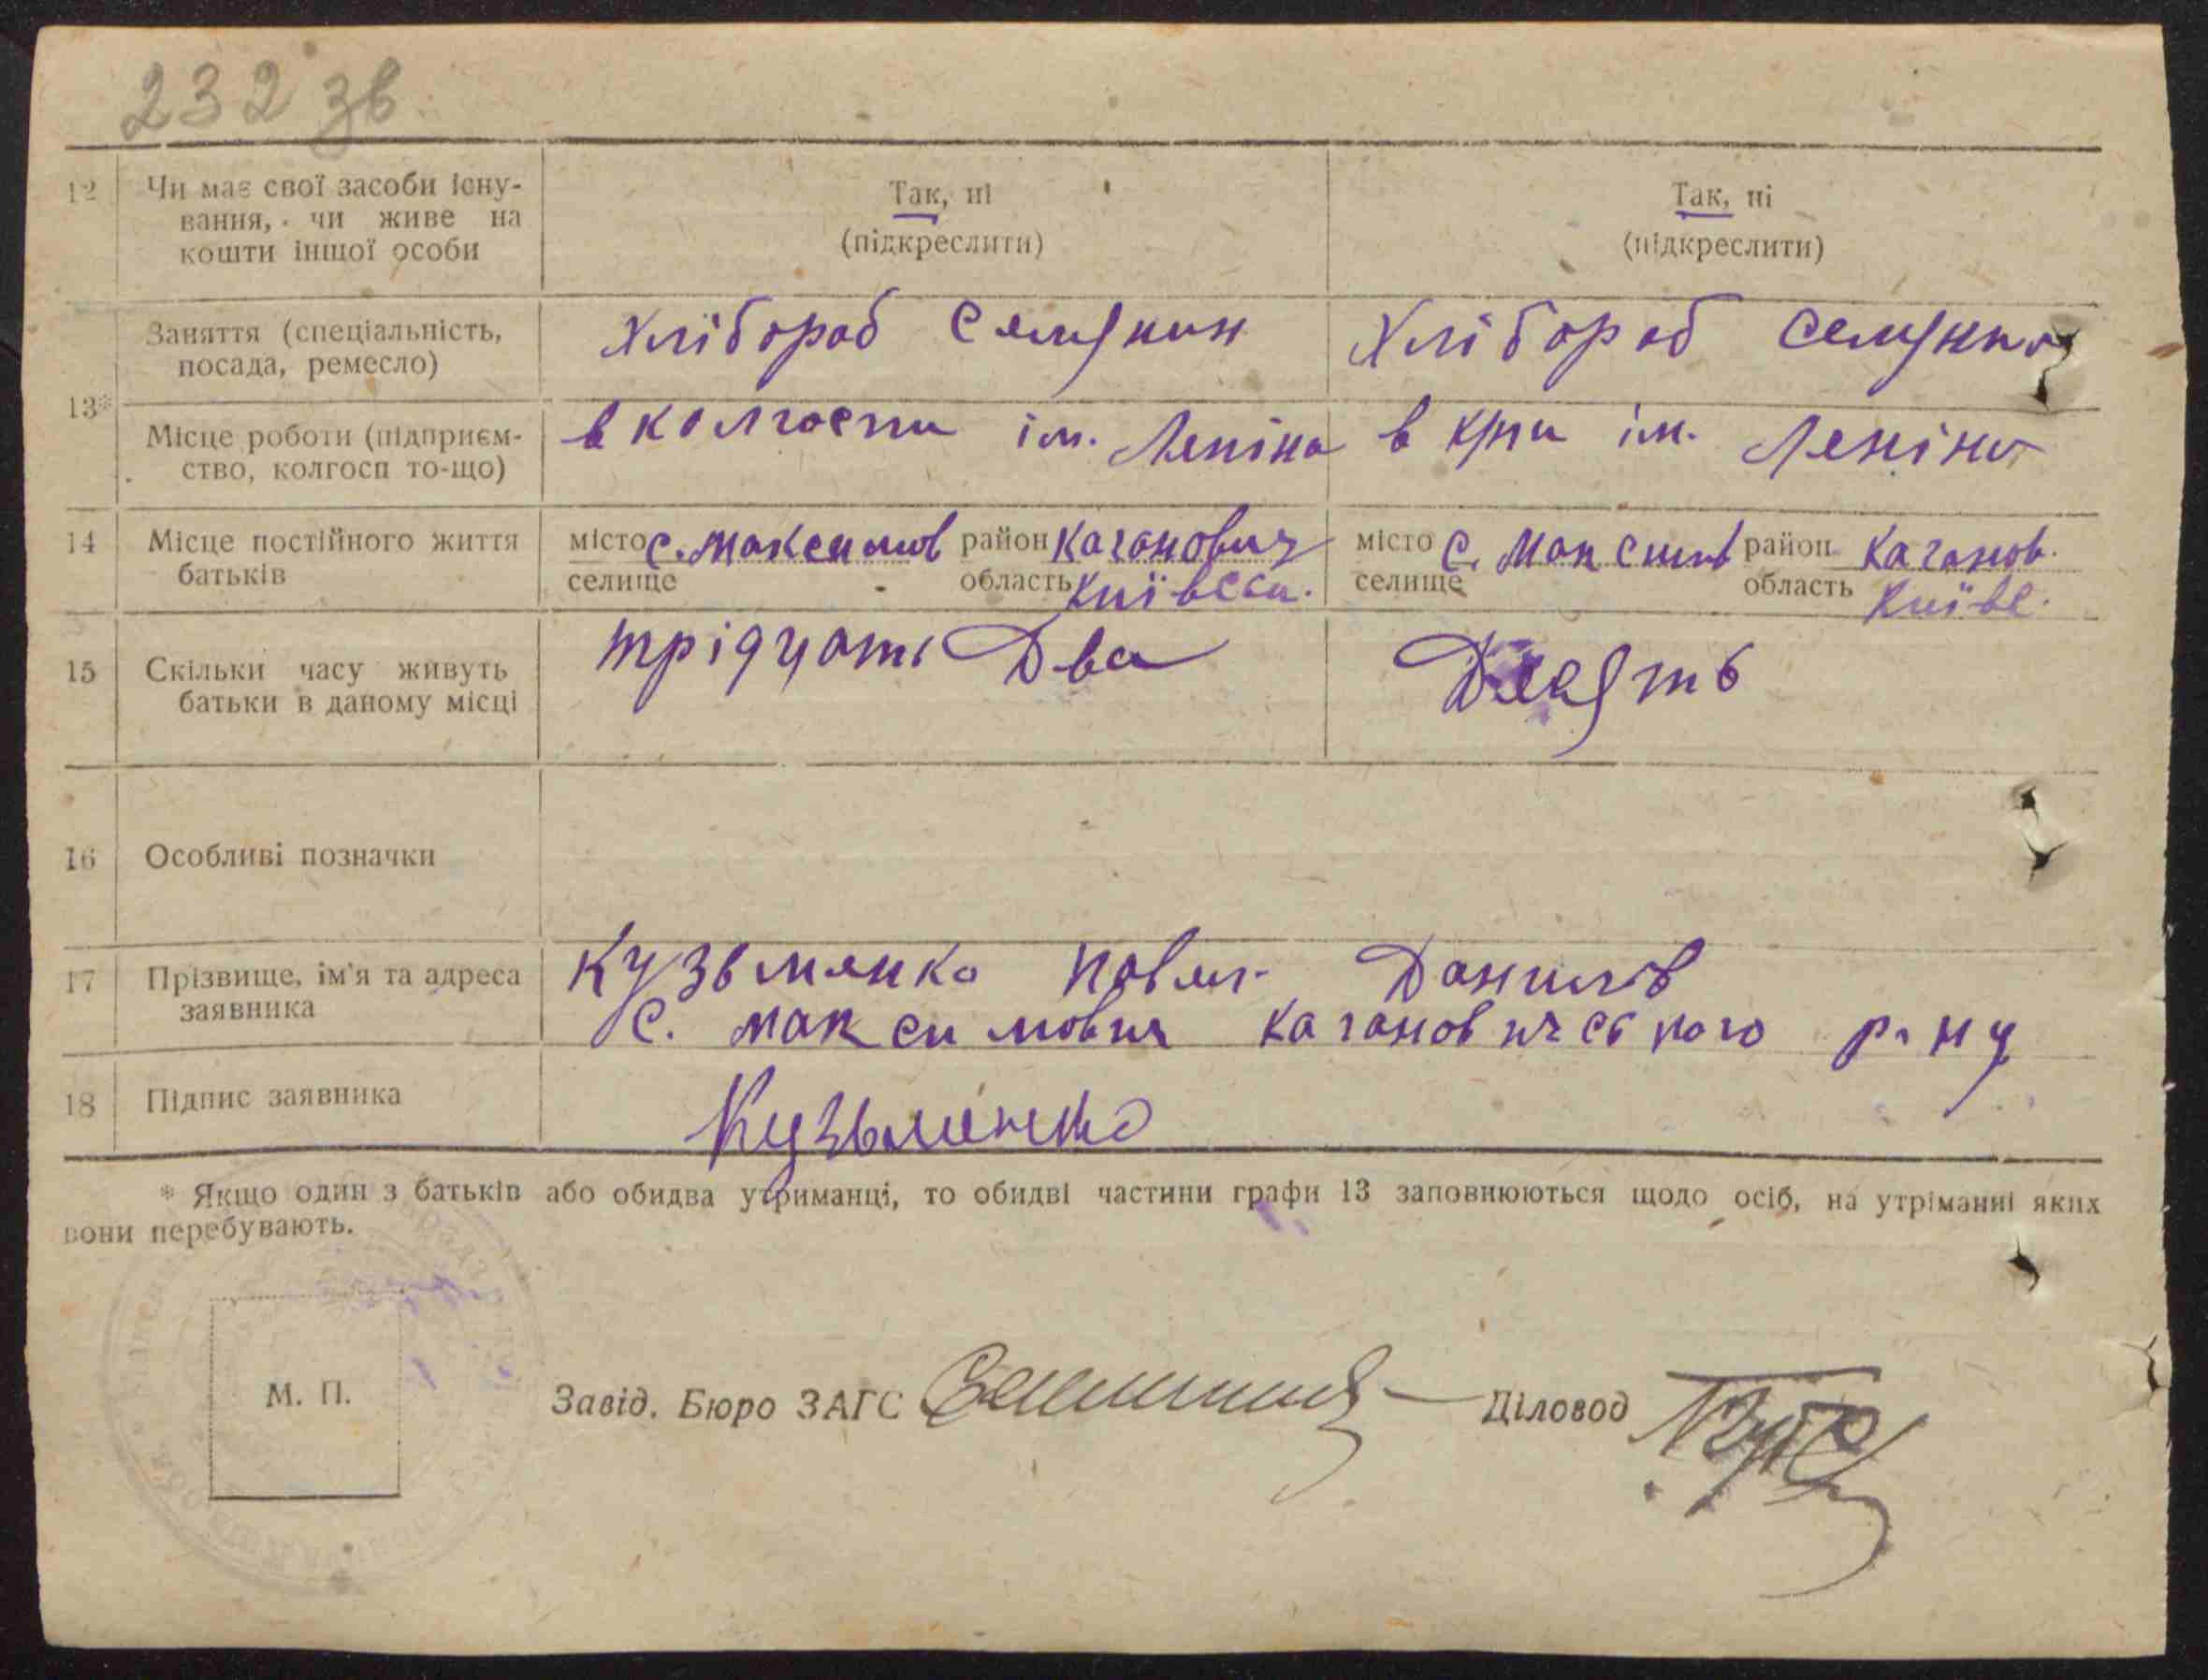 232 зв.
12 Чи має свої засоби існу-
вання, чи живе на
кошти іншої особи
Так, ні
(підкреслити)
Так, ні
(підкреслити)
13*
Заняття (спеціальність,
посада, ремесло)
Хлібороб Селянин
Хлібороб Селянка
Місце роботи (підприєм-
ство, колгосп то-що)
в колгоспи ім. Леніна
в ім. Леніна
14 Місце постійного життя
батьків
місто с. Максимов район Каганович
селище область Київськ.
місто с. Максимов район Каганов.
селище область Київс.
15 Скільки часу живуть
батьки в даному місці
трідцать Два
16 Особливі позначки
17 Прізвище, ім'я та адреса
заявника
Кузьменко Павл. Данилов
С. Максимович Кагановичського р-ну
18 Підпис заявника
Кузьменко
* Якщо один з батьків або обидва утриманці, то обидві частини графи 13 заповнюються щодо осіб, на утріманні яких
вони перебувають.
М. П.
Завід. Бюро ЗАГС
Діловод